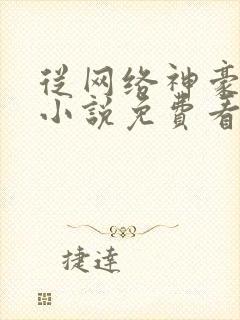 从网络神豪
小说免費看
捷達